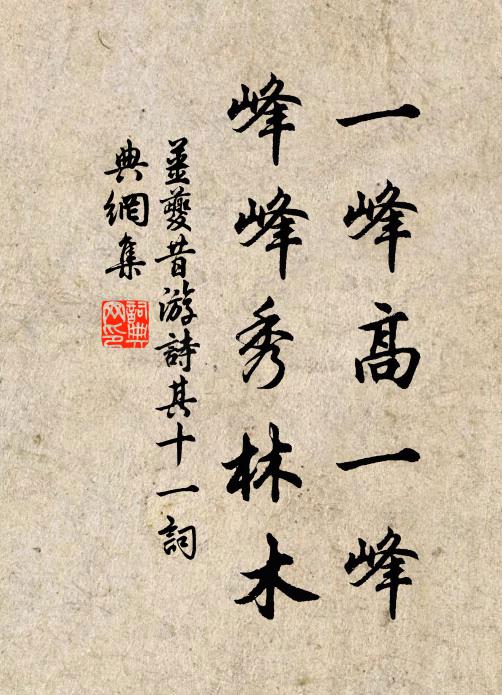 一峰高一峰
峰峰秀林木
姜夔昔游詩其十一詞
典網集
詞典
网印